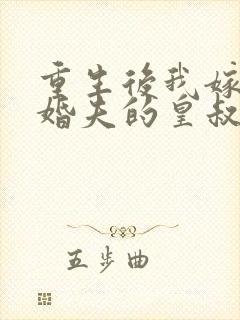 重生後我嫁
婚夫的皇叔
五步曲